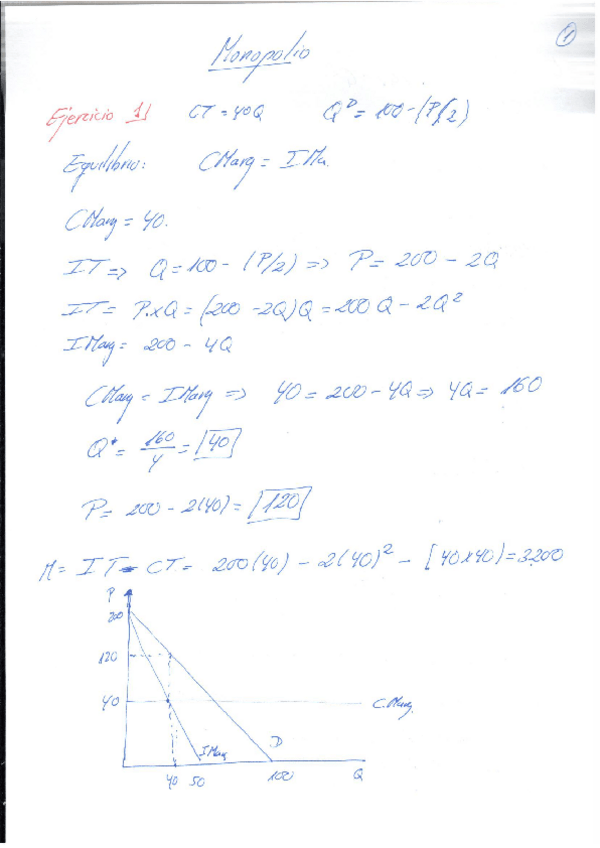 1
Monopolio
Ejercicio 1) CT = 40Q Q^D = 100 - (P/2)
Equilibrio: CMarg = IMa.
CMarg = 40.
IT => Q = 100 - (P/2) => P = 200 - 2Q
IT = P.xQ = (200 - 2Q)Q = 200Q - 2Q²
IMarg = 200 - 4Q
CMarg = IMarg => 40 = 200 - 4Q => 4Q = 160
Q* = 160/4 = 40
P = 200 - 2(40) = 120
π = IT - CT = 200(40) - 2(40)² - [40x40) = 3200
P
200
120
40 C.Marg.
IMarg D
40 50 100 Q